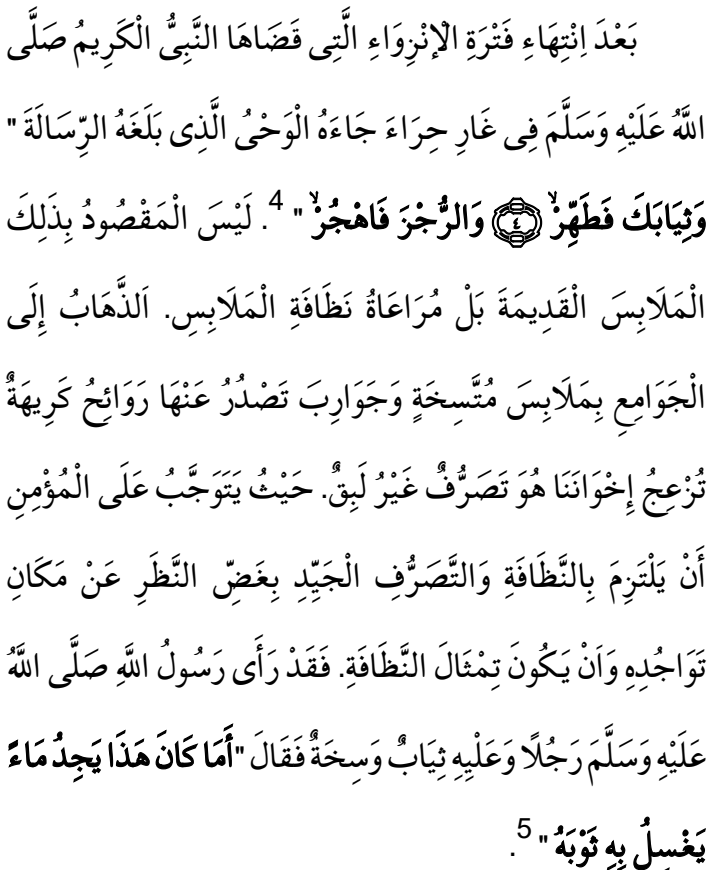 بَعْدَ اِنْتِهَاءِ فَتْرَةِ الْاِنْزِوَاءِ الَّتِى قَضَاهَا النَّبِىُّ الْكَرِيمُ صَلَّى
اللَّهُ عَلَيْهِ وَسَلَّمَ فِى غَارِ حِرَاءَ جَاءَهُ الْوَحْىُ الَّذِى بَلَغَهُ الرِّسَالَةَ "
وَثِيَابَكَ فَطَهِّرْۙ ﴿٤﴾ وَالرُّجْزَ فَاهْجُرْۙ " 4. لَيْسَ الْمَقْصُودُ بِذَلِكَ
الْمَلَابِسَ الْقَدِيمَةَ بَلْ مُرَاعَاةُ نَظَافَةِ الْمَلَابِسِ. اَلذَّهَابُ إِلَى
الْجَوَامِعِ بِمَلَابِسَ مُتَّسِخَةٍ وَجَوَارِبَ تَصْدُرُ عَنْهَا رَوَائِحُ كَرِيهَةٌ
تُزْعِجُ إِخْوَانَنَا هُوَ تَصَرُّفٌ غَيْرُ لَبِقٌ. حَيْثُ يَتَوَجَّبُ عَلَى الْمُؤْمِنِ
أَنْ يَلْتَزِمَ بِالنَّظَافَةِ وَالتَّصَرُّفِ الْجَيِّدِ بِغَضِّ النَّظَرِ عَنْ مَكَانِ
تَوَاجُدِهِ وَاَنْ يَكُونَ تِمْثَالَ النَّظَافَةِ. فَقَدْ رَأَى رَسُولُ اللَّهِ صَلَّى اللَّهُ
عَلَيْهِ وَسَلَّمَ رَجُلًا وَعَلْيِهِ ثِيَابٌ وَسِخَةٌ فَقَالَ "أَمَا كَانَ هَذَا يَجِدُ مَاءً
يَغْسِلُ بِهِ ثَوْبَهُ " 5.